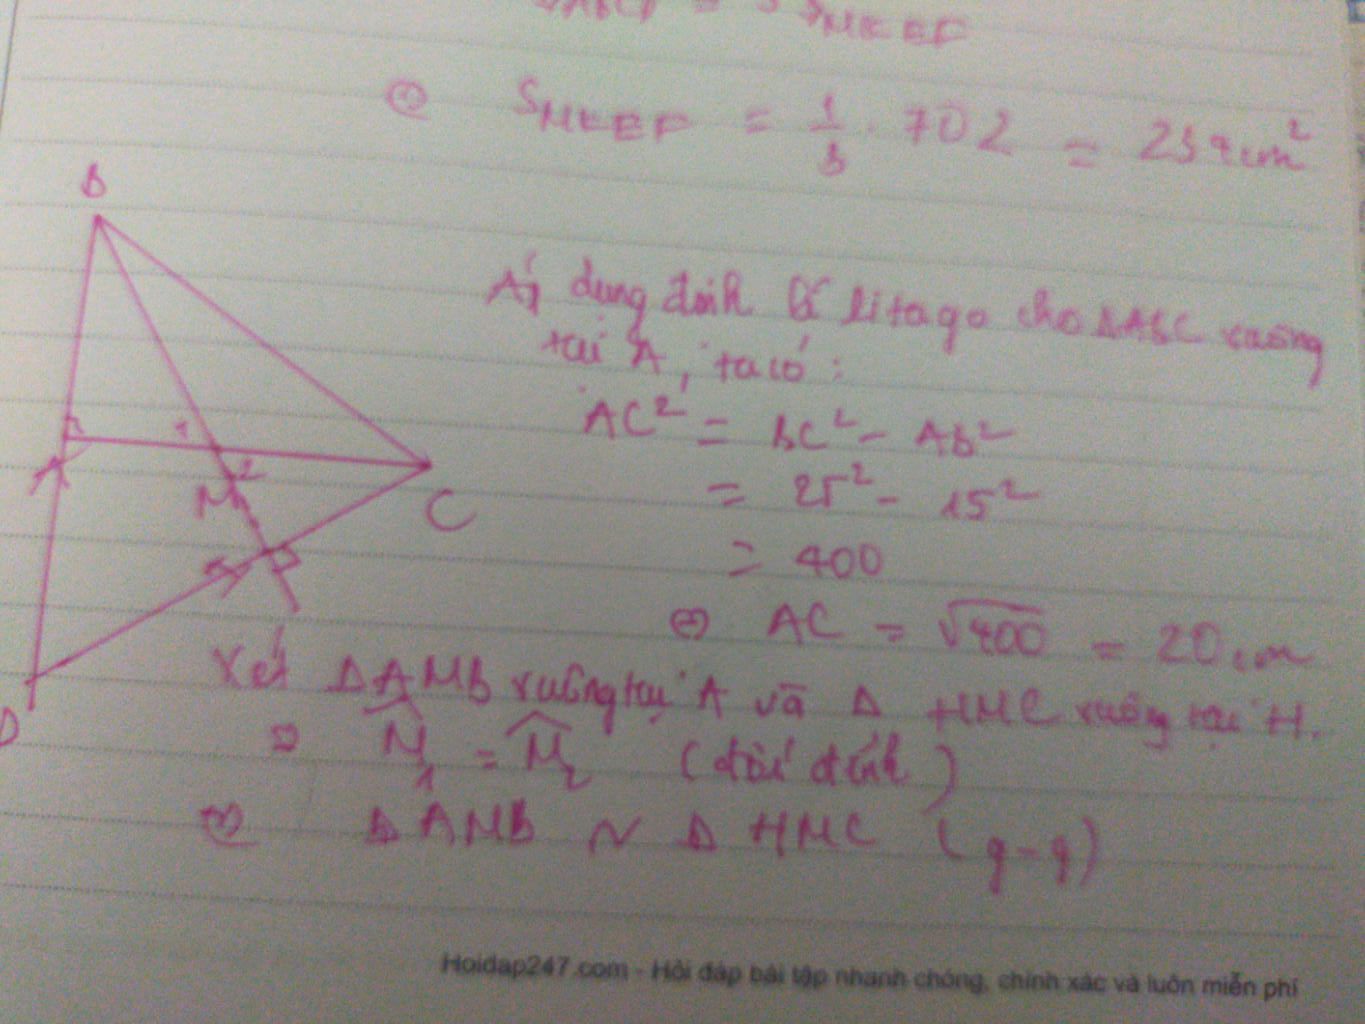 S MKEF = 1/3 . 702 = 234 cm²
B
Áp dụng định lí Pitago cho ΔABC vuông
tại A, ta có:
AC² = BC² - AB²
= 25² - 15²
= 400
⇔ AC = √400 = 20 cm
A
1
M
2
C
H
D
Xét ΔAMB vuông tại A và Δ HMC vuông tại H.
M₁ = M₂ (đối đỉnh)
Δ AMB ~ Δ HMC (g-g)
Hoidap247.com - Hỏi đáp bài tập nhanh chóng, chính xác và luôn miễn phí